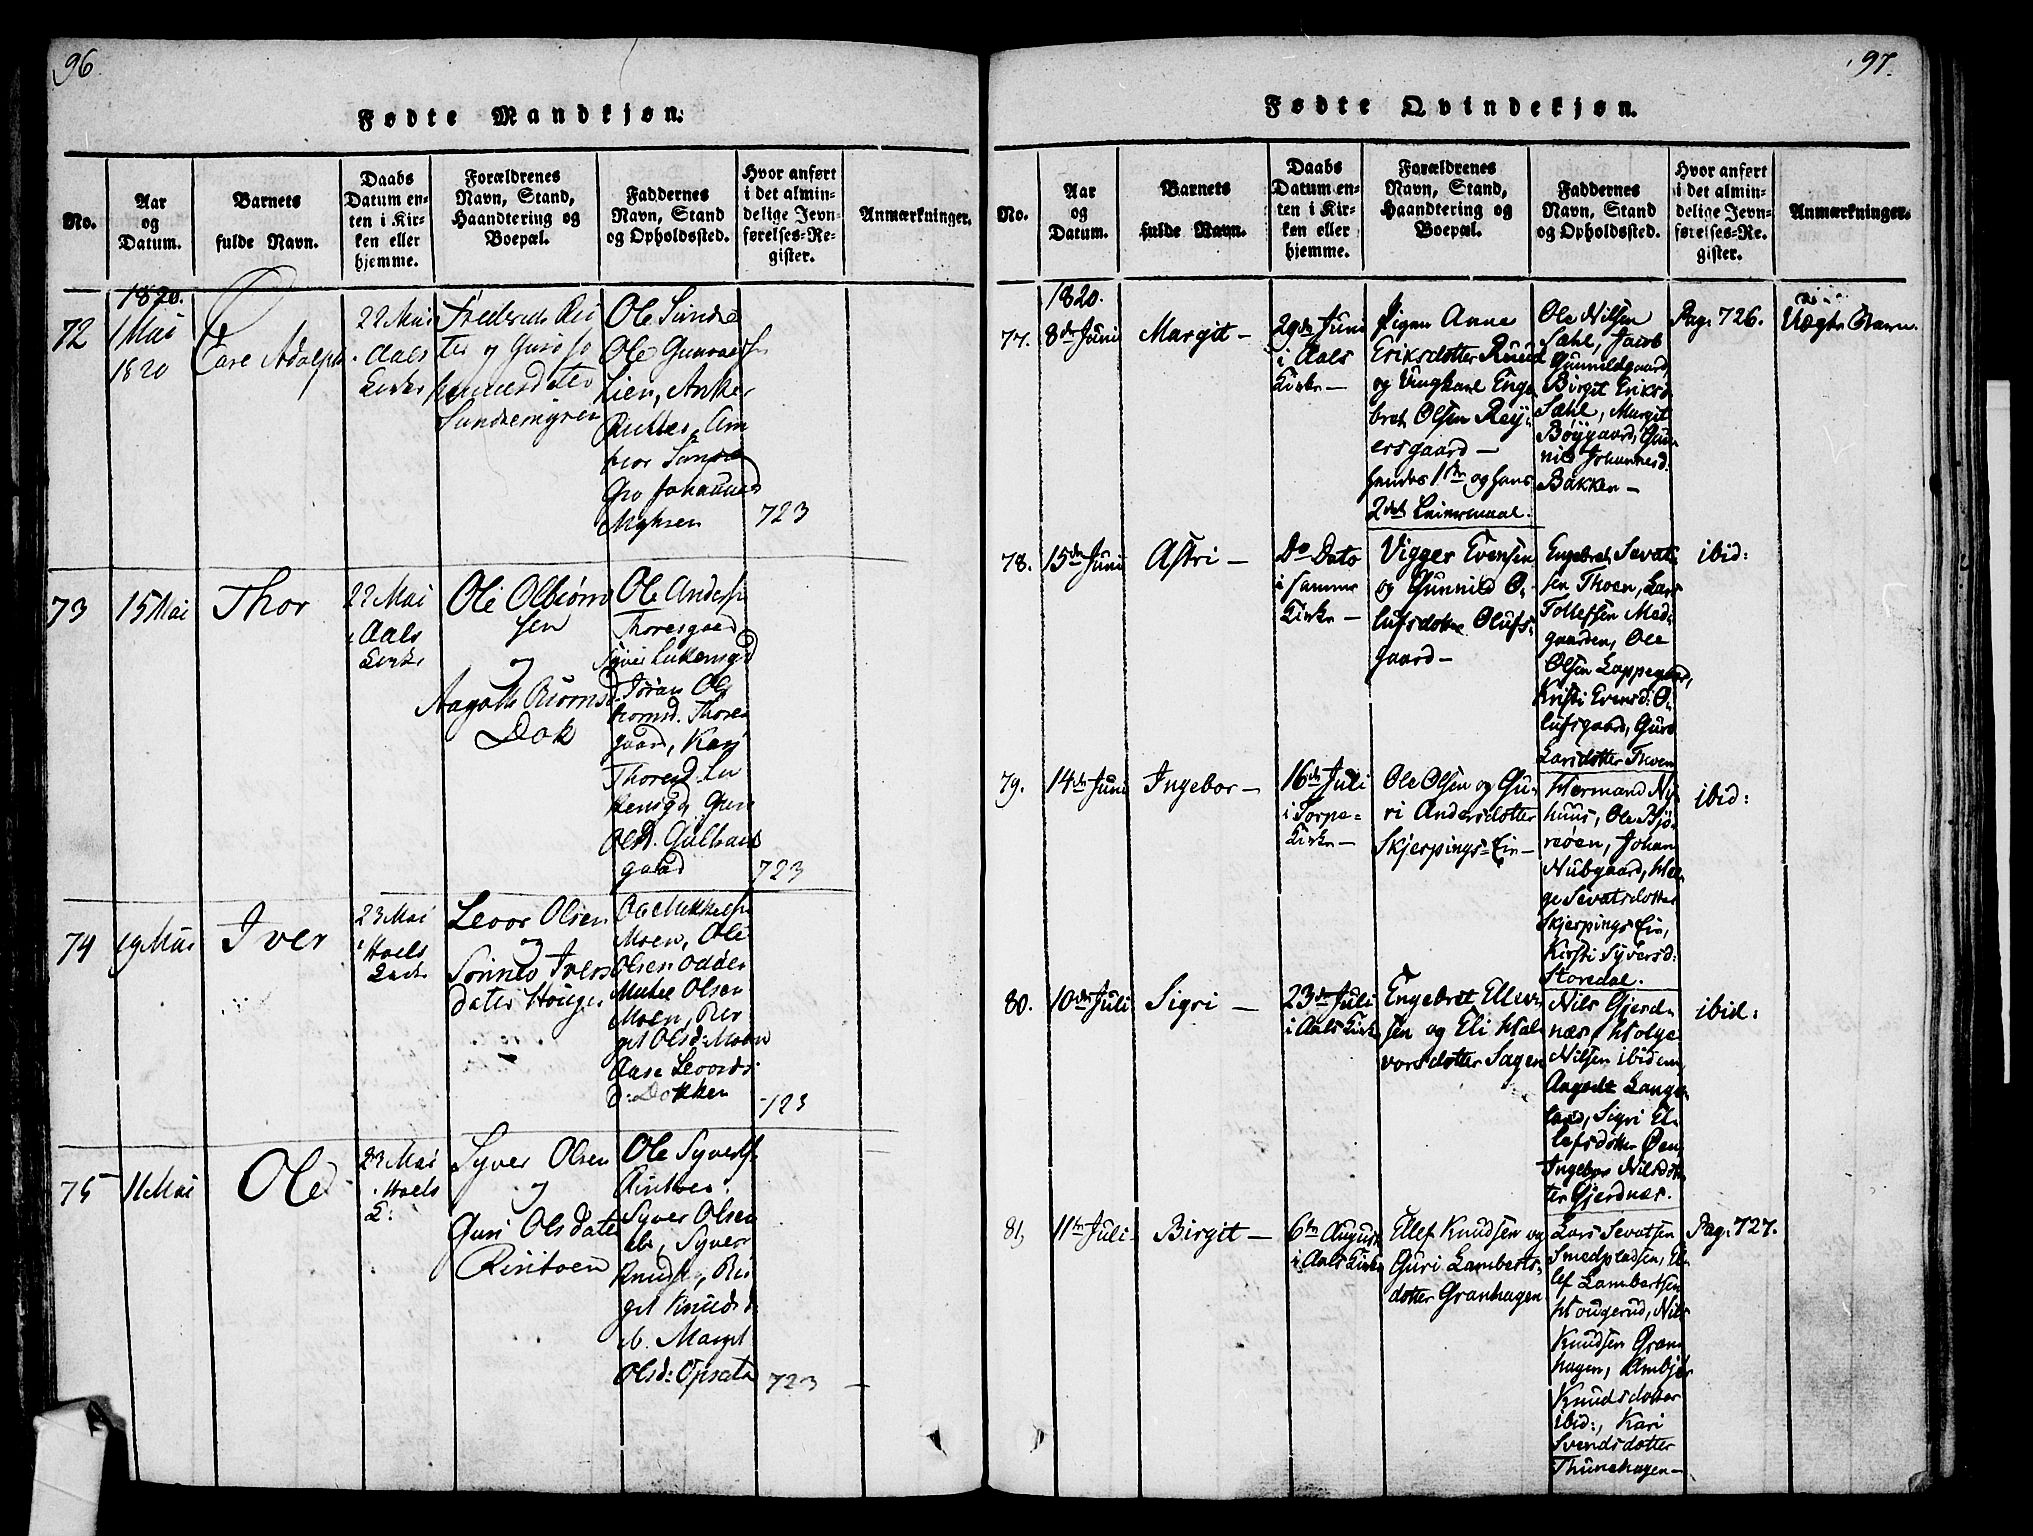 96.
Fødte Mandkjøn.
No.
Aar
og
Datum.
Barnets
fulde Navn.
Daabs
Datum en-
ten i Kir-
ken eller
hjemme.
Forældrenes
Navn, Stand,
Haandtering og
Boepæl.
Faddernes
Navn, Stand
og Opholdssted.
Hvor anført
i det almin-
delige Jevn-
førelses-Re-
gister.
Anmærkninger.
72
1820.
1 Mai
1820
Care Adolph
22 Mai
Aals
Kirke
Ole Sundre
Ole
Lien, Anker
Gro Johannes
723
73
15 Mai
Thor
22 Mai
i Aals
Kirke
Ole Olbiørn
sen
og
Dok
Ole Anders
Thoresgaard
gaard, Kari
Thoresd.
gaard
723
74
19 Mai
Iver
23 Mai
i Hoels
Kirke
Levor Olsen
og
Sønnev Ivers
dater Houger
Ole Mikkels
Moen, Ole
Olsen
Mikel Olsen
Moen, Bir
git Olsd: Moen
Aase Levords
d: Dokken
723
75
11 Mai
Ole
23 Mai
i Hoels
K:
Syver Olsen
og
Guri Olsdater
Ole Syvers
Syver Olsen
ib, Syver
Knuds, Bir
git Knudsd
ib. Margit
Olsd: Opsata
723 —
97.
Fødte Qvindekjøn.
No.
Aar
og
Datum.
Barnets
fulde Navn.
Daabs
Datum en-
ten i Kir-
ken eller
hjemme.
Forældrenes
Navn, Stand,
Haandtering og
Boepæl.
Faddernes
Navn, Stand
og Opholdssted.
Hvor anført
i det almin-
delige Jevn-
førelses-Re-
gister.
Anmærkninger.
77.
1820.
8de Juni
Margit —
29de Juni
i Aals
Kirke —
Pigen Anne
Eriksdotter Ruud
og Ungkarl Enge
bret Olsen Reij-
ersgaard —
hendes 1ste og hans
2det Leiermaal.
Ole Nilsen
Sahl, Jacob
Gunnildgaard,
Birgit Eriksd
Sahl, Margit
Bøygaard, Gun
nild Johannesd.
Bakken —
Pag: 726.
Uægte Barn.
78.
15de Juni
Astri —
Do Dato
i samme
Kirke —
Vigger Evensen
og Gunnild O-
lufsdotter Olufs-
gaard —
Engebret Sevat-
sen Thoen, Lars
Tollefsen Med-
gaarden, Ole
Olsen Lappegard,
Kristi Evensd: O-
lufsgaard, Guro
Larsdotter Thoen
ibid:
79.
14de Juni
Ingebor —
16de Juli
i Torpe-
Kirke —
Ole Olsen og Gu-
ri Andersdotter
Skjerpings-Eie —
Hermand Ny-
huus, Ole Bjø-
reøen, Johan
Nubgaard, Hel-
ge Sevatsdotter
Skjerpings Eie,
Kirsti Syversd:
Storedal.
ibid:
80.
10de Juli
Sigri —
23de Juli
i Aals Kirke
Engebret Ellev-
sen og Eli Hal-
vorsdotter Sagen
Nils Gjerd-
næs, Holge
Nilsen ibidem,
Lange-
land, Sigri El-
lefsdotter Øen
Ingebor Nilsdot-
ter Gjerdnæs.
ibid:
81,
11te Juli
Birgit —
6te August
i Aals Kirke
Ellef Knudsen og
Guri Lamberts-
dotter Granhagen
Lars Sevatsen
Smedpladsen, El-
lef Lambertsen
Hougerud, Nils
Knudsen Gran
hagen, Ambjør
Knudsdotter
ibid:, Kari
Svendsdotter
Thunehagen —
Pag: 727.